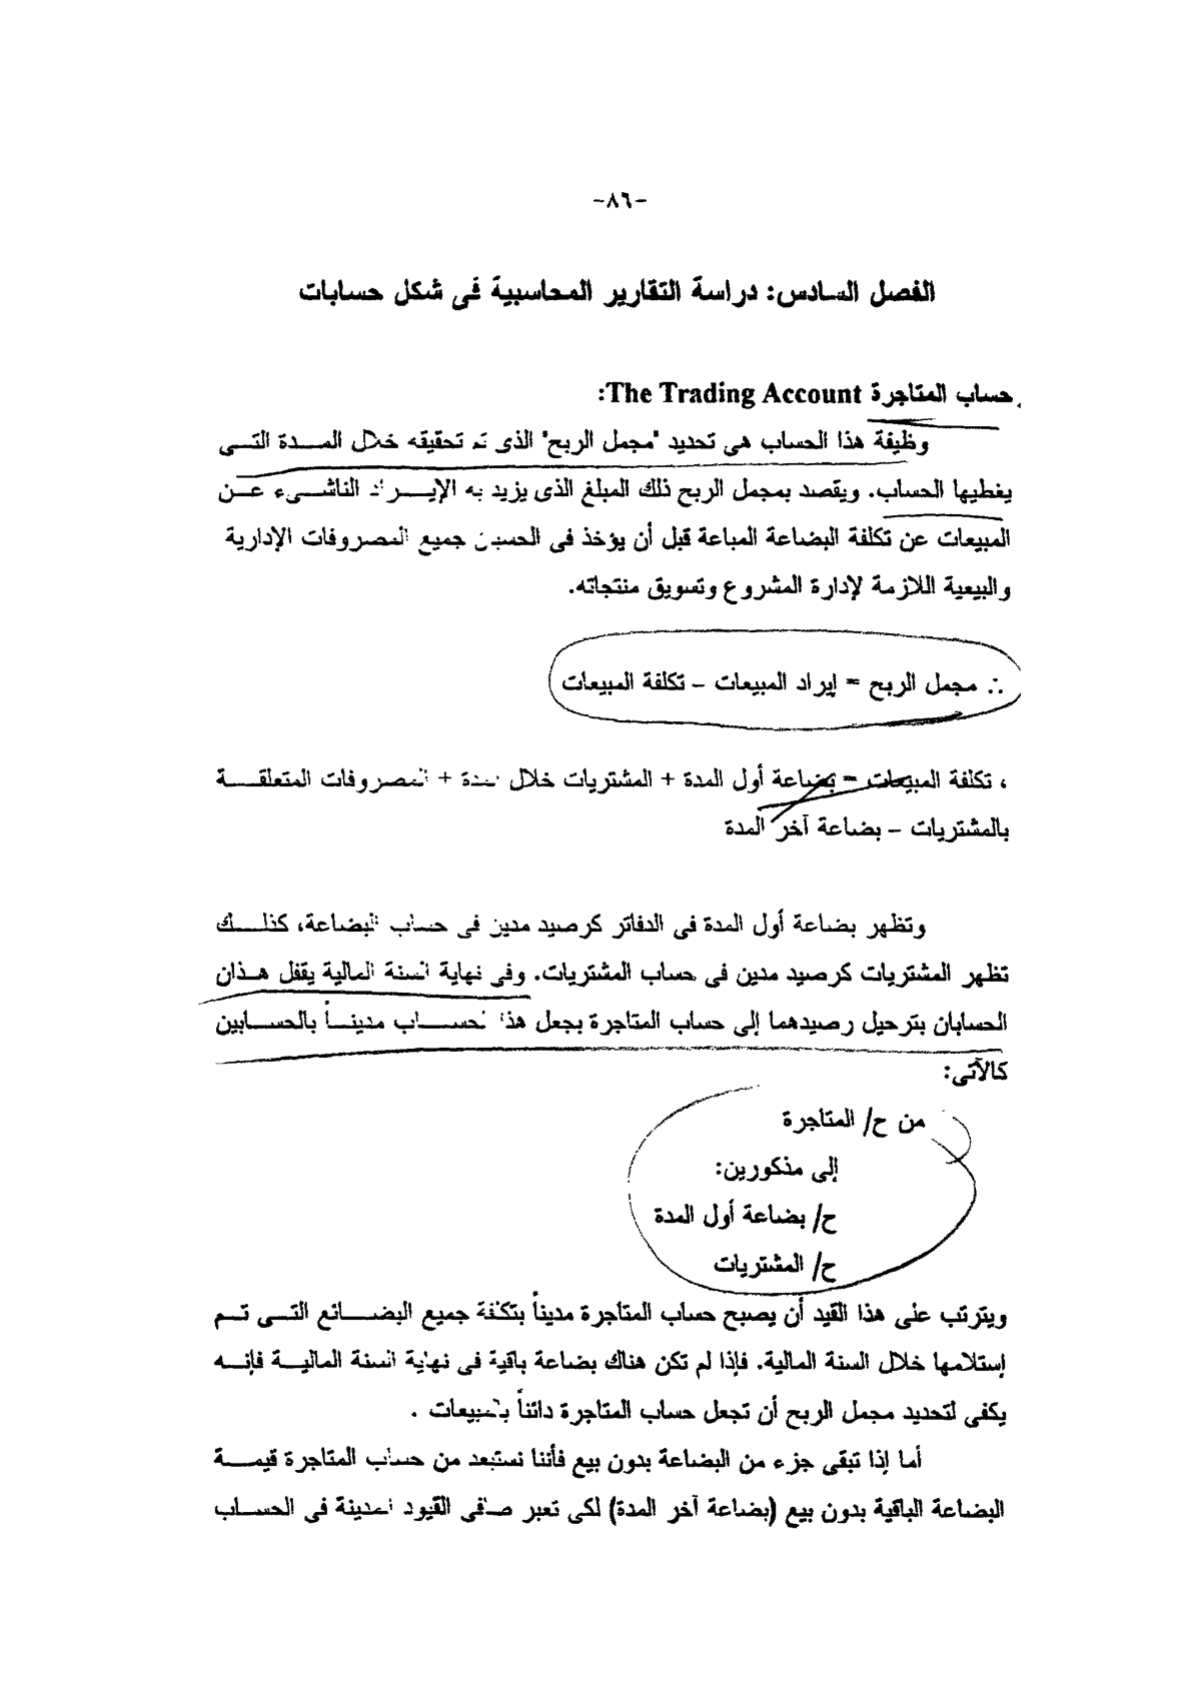 -٨٦-
الفصل السادس: دراسة التقارير المحاسبية فى شكل حسابات
حساب المتاجرة The Trading Account:
وظيفة هذا الحساب هى تحديد "مجمل الربح" الذى تم تحقيقه خلال المدة التى
يغطيها الحساب. ويقصد بمجمل الربح ذلك المبلغ الذى يزيد به الإيراد الناشىء عن
المبيعات عن تكلفة البضاعة المباعة قبل أن يؤخذ فى الحسبان جميع المصروفات الإدارية
والبيعية اللازمة لإدارة المشروع وتسويق منتجاته.
∴ مجمل الربح = إيراد المبيعات – تكلفة المبيعات
، تكلفة المبيعات = بضاعة أول المدة + المشتريات خلال المدة + المصروفات المتعلقة
بالمشتريات – بضاعة آخر المدة
وتظهر بضاعة أول المدة فى الدفاتر كرصيد مدين فى حساب البضاعة، كذلك
تظهر المشتريات كرصيد مدين فى حساب المشتريات. وفى نهاية السنة المالية يقفل هذان
الحسابان بترحيل رصيدهما إلى حساب المتاجرة بجعل هذا الحساب مديناً بالحسابين
كالآتى:
من ح/ المتاجرة
إلى مذكورين:
ح/ بضاعة أول المدة
ح/ المشتريات
ويترتب على هذا القيد أن يصبح حساب المتاجرة مديناً بتكلفة جميع البضائع التى تم
إستلامها خلال السنة المالية. فإذا لم تكن هناك بضاعة باقية فى نهاية السنة المالية فإنه
يكفى لتحديد مجمل الربح أن تجعل حساب المتاجرة دائناً بالمبيعات .
أما إذا تبقى جزء من البضاعة بدون بيع فأننا نستبعد من حساب المتاجرة قيمة
البضاعة الباقية بدون بيع (بضاعة آخر المدة) لكى تعبر صافى القيود المدينة فى الحساب